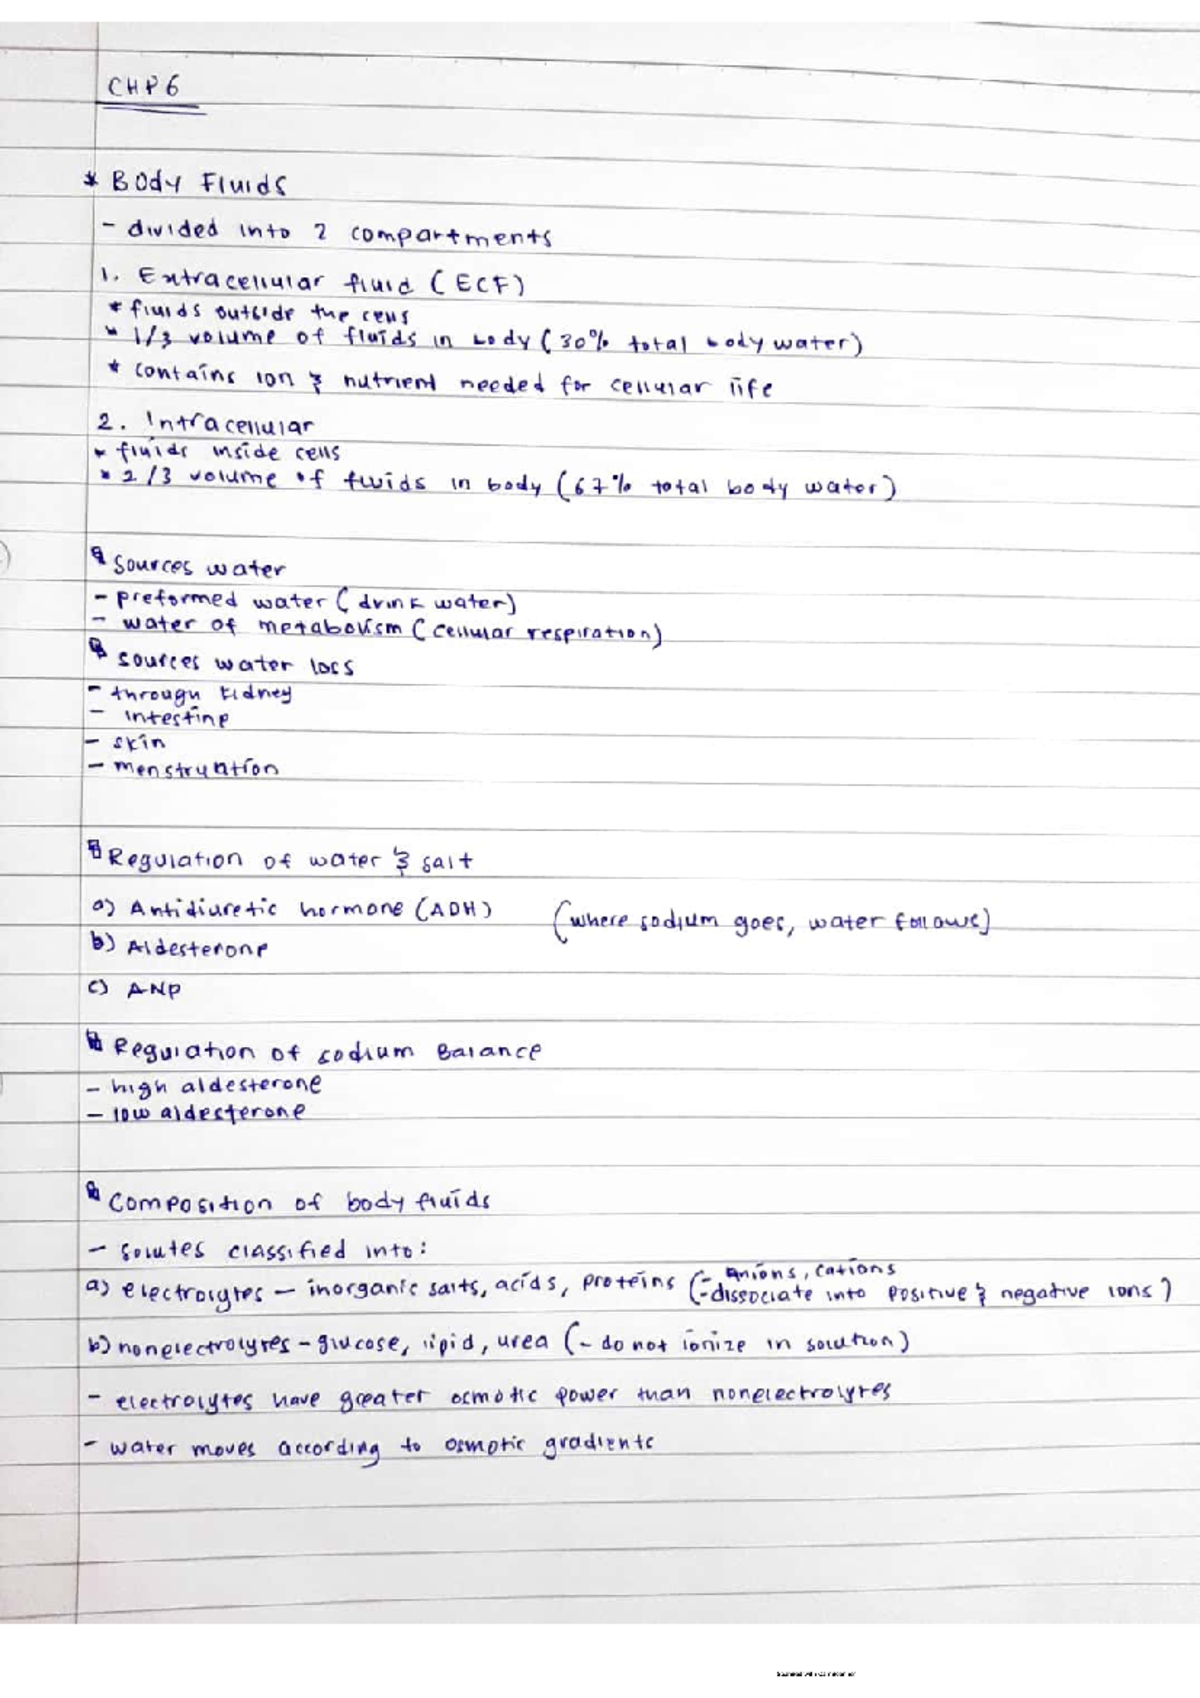 CHP 6
* Body Fluids
- divided into 2 compartments
1. Extracellular fluid (ECF)
* fluids outside the cells
* 1/3 volume of fluids in body (30% total body water)
* contains ion & nutrient needed for cellular life
2. Intracellular
* fluids inside cells
* 2/3 volume of fluids in body (67% total body water)
Sources water
- preformed water (drink water)
- water of metabolism (cellular respiration)
Sources water loss
- through kidney
- intestine
- skin
- menstruation
Regulation of water & salt
a) Antidiuretic hormone (ADH) (where sodium goes, water follows)
b) Aldesterone
c) ANP
Regulation of sodium Balance
- high aldesterone
- low aldesterone
Composition of body fluids
- Solutes classified into:
a) electrolytes - inorganic salts, acids, proteins (- anions, cations
- dissociate into positive & negative ions)
b) nonelectrolytes - glucose, lipid, urea (- do not ionize in solution)
- electrolytes have greater osmotic power than nonelectrolytes
- water moves according to osmotic gradients